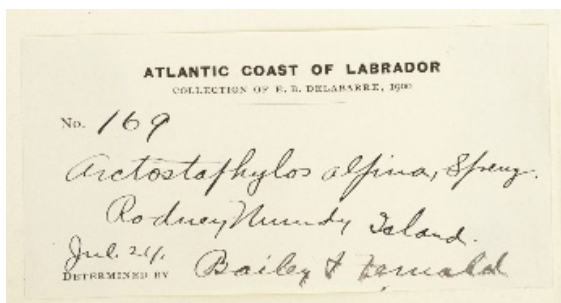 ATLANTIC COAST OF LABRADOR
COLLECTION OF E. B. DELABARRE, 1900
No. 169
Arctostaphylos alpina, Spreng.
Rodney Mundy Island.
Jul. 24.
DETERMINED BY Bailey & Fernald